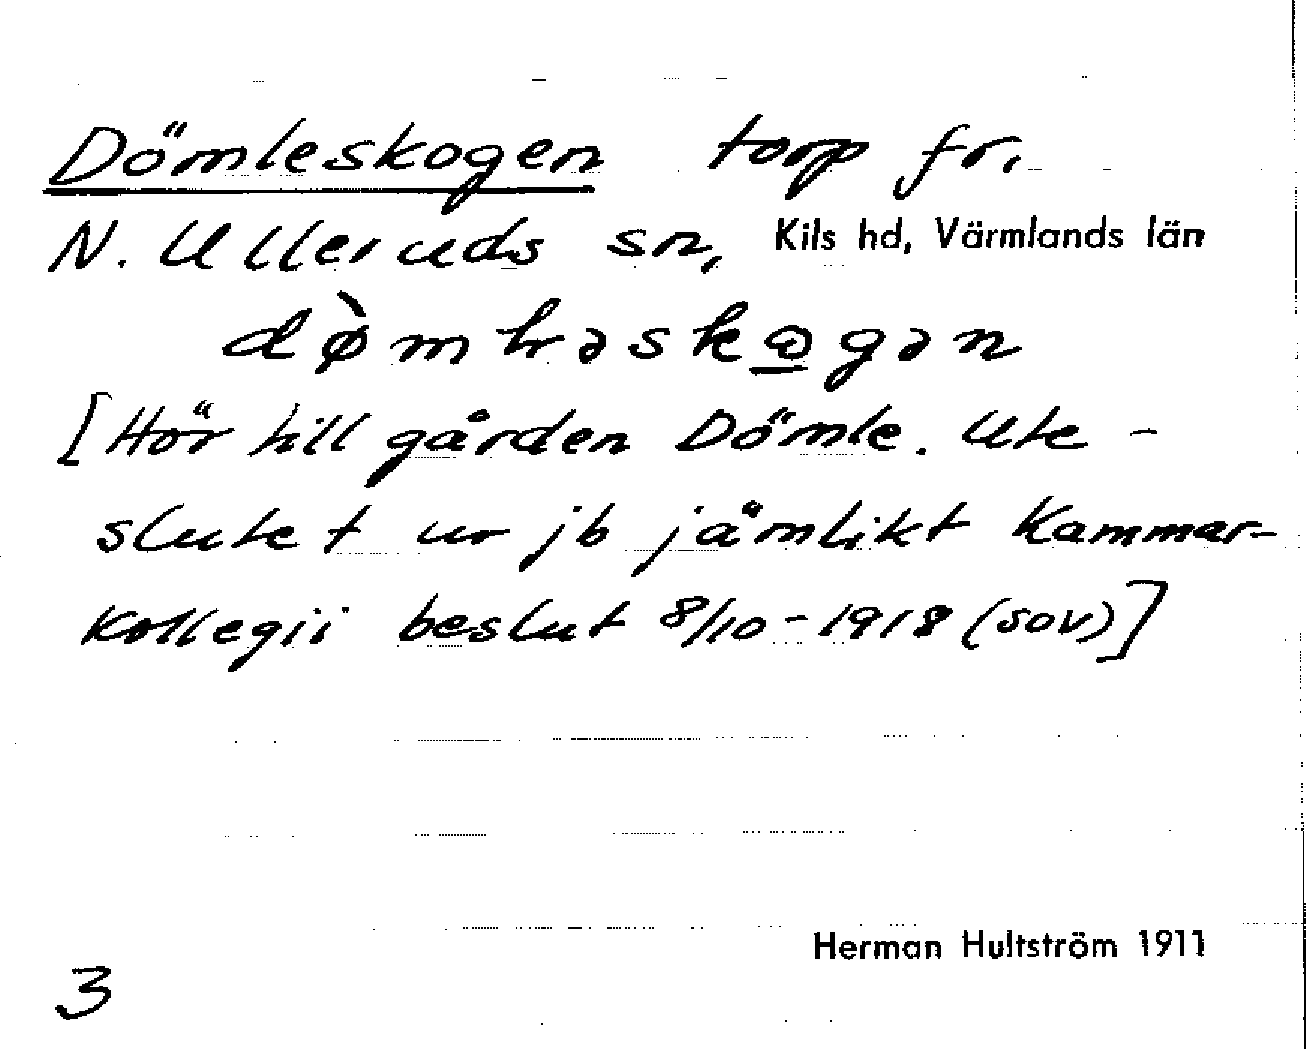 Dömleskogen torp fr.
N. Ulleruds sn, Kils hd, Värmlands län
[Hör till gården Dömle. Ute-
slutet ur jb jämlikt Kammar-
kollegii beslut 8/10-1918 (SOV)]
Herman Hultström 1911
3